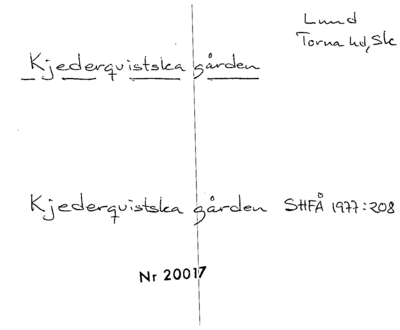 Lund
Torna hd, Sk
Kjederquistska gården
Kjederquistska gården SHFÅ 1977:208
Nr 20017